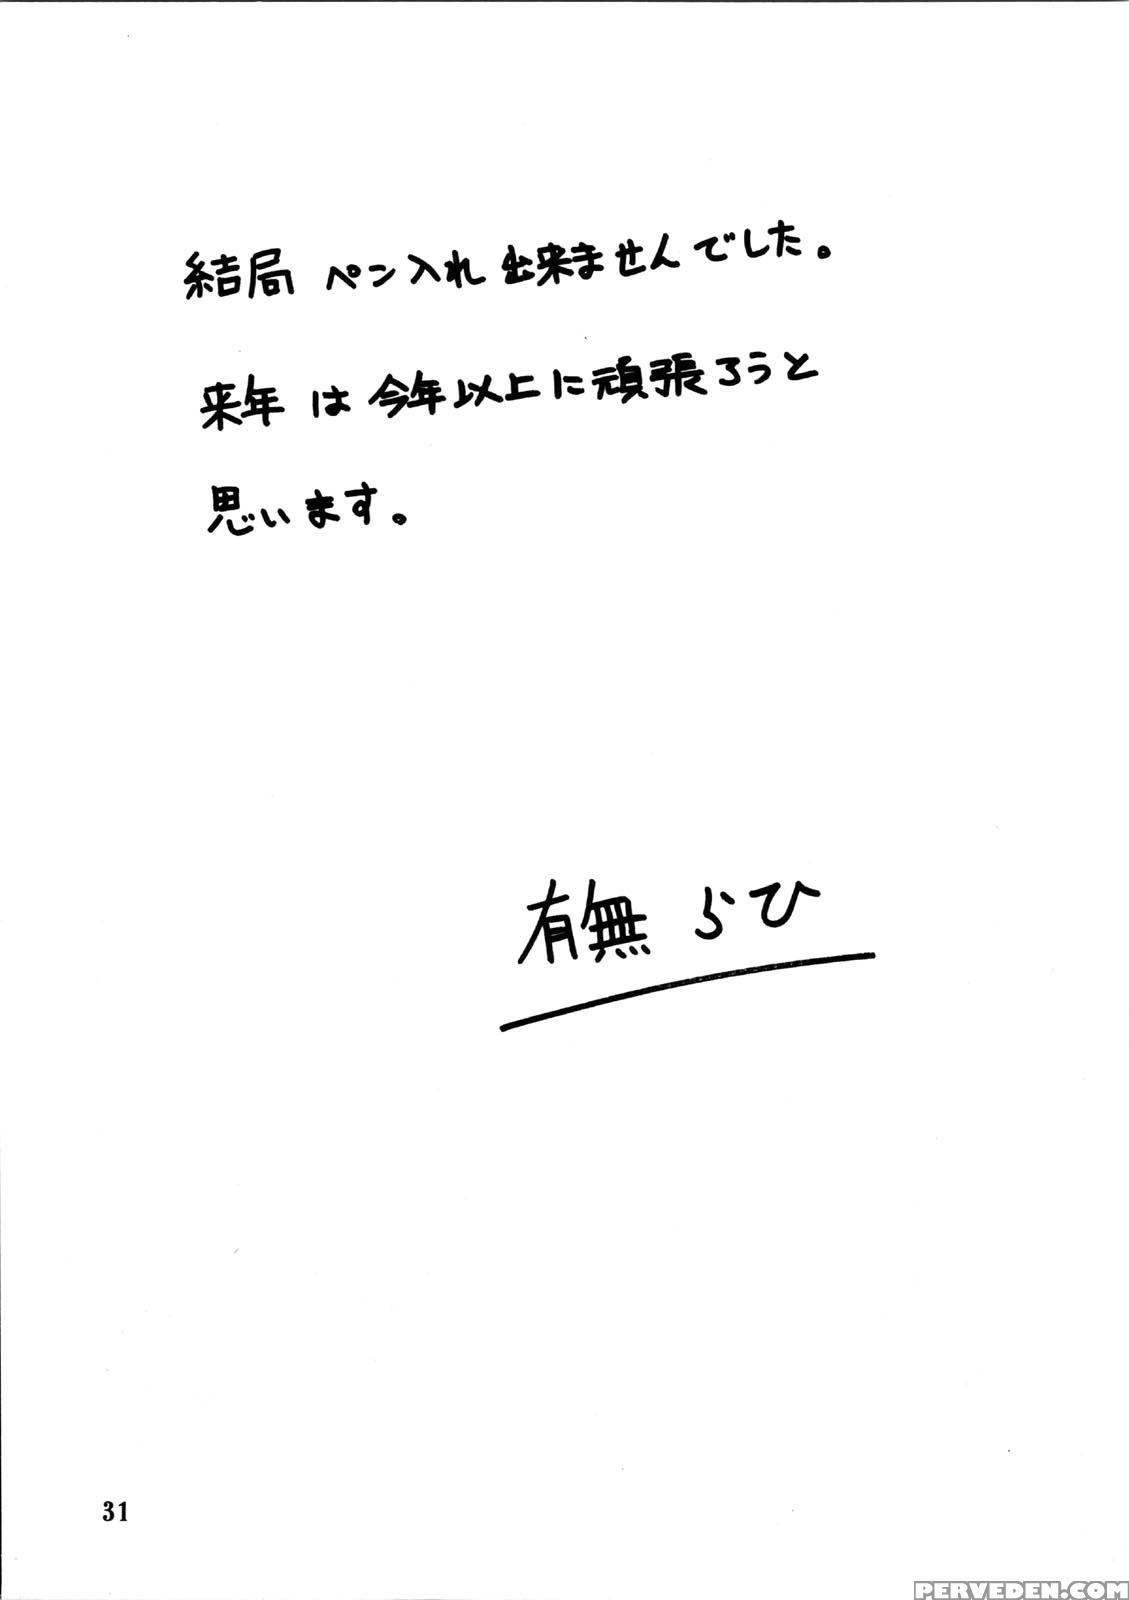 結局 ペン入れ 出来ませんでした。
来年 は 今年以上に頑張ろうと
思います。
有無 らひ
31
PERVEDEN.COM